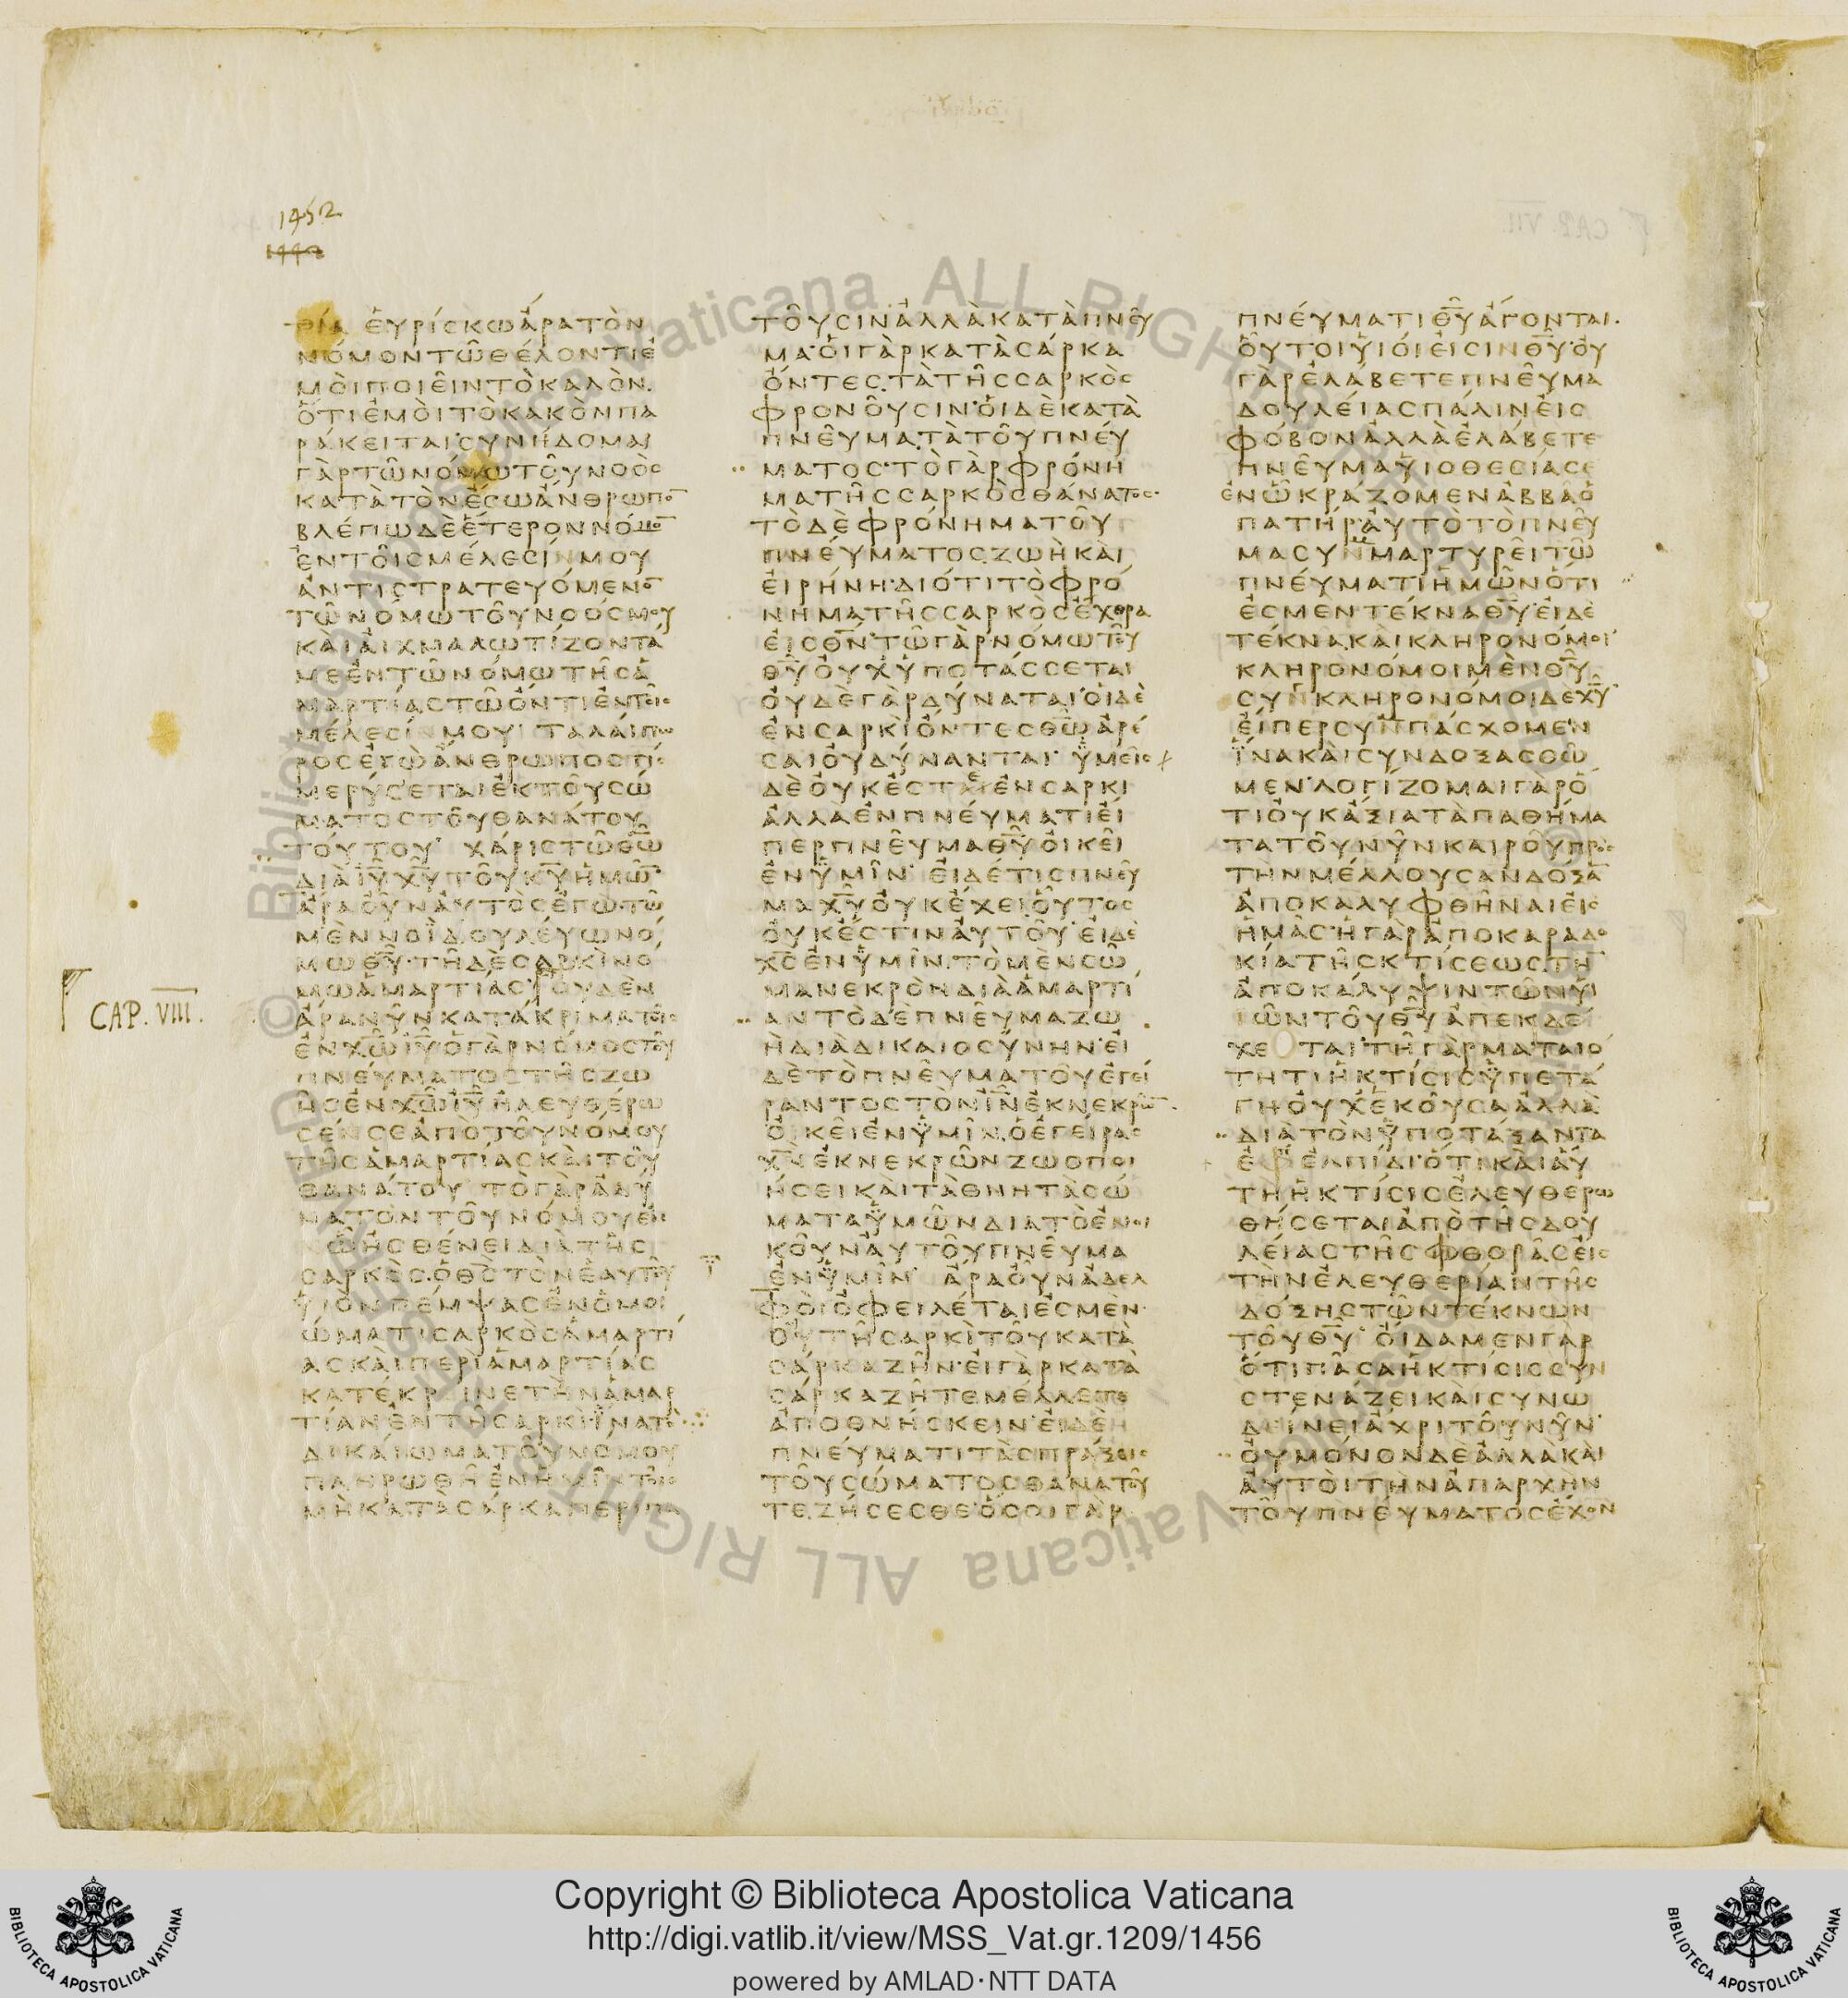 1452
ΤΙΑ ΕΥΡΙΣΚΩΑΡΑΤΟΝ
ΝΟΜΟΝΤΩΘΕΛΟΝΤΙΕ
ΜΟΙΠΟΙΕΙΝΤΟΚΑΛΟΝ
ΟΤΙΕΜΟΙΤΟΚΑΚΟΝΠΑ
ΡΑΚΕΙΤΑΙΣΥΝΗΔΟΜΑΙ
ΓΑΡΤΩΝΟΜΩΤΟΥΝΟΟΣ
ΚΑΤΑΤΟΝΕΣΩΑΝΘΡΩΠΟ̅
ΒΛΕΠΩΔΕΕΤΕΡΟΝΝΟΜΟ̅
ΕΝΤΟΙΣΜΕΛΕΣΙΝΜΟΥ
ΑΝΤΙΣΤΡΑΤΕΥΟΜΕΝΟ̅
ΤΩΝΟΜΩΤΟΥΝΟΟΣΜΟΥ
ΚΑΙΑΙΧΜΑΛΩΤΙΖΟΝΤΑ
ΜΕΕΝΤΩΝΟΜΩΤΗΣΑ
ΜΑΡΤΙΑΣΤΩΟΝΤΙΕΝΤΟΙΣ
ΜΕΛΕΣΙΝΜΟΥ ΤΑΛΑΙΠΩ
ΡΟΣΕΓΩΑΝΘΡΩΠΟΣΤΙΣ
ΜΕΡΥΣΕΤΑΙΕΚΤΟΥΣΩ
ΜΑΤΟΣΤΟΥΘΑΝΑΤΟΥ
ΤΟΥΤΟΥ ΧΑΡΙΣΤΩΘΩ̅
ΔΙΑΙΥ̅ΧΥ̅ΤΟΥΚΥ̅ΗΜΩ̅
ΑΡΑΟΥΝΑΥΤΟΣΕΓΩΤΩ
ΜΕΝΝΟΙΔΟΥΛΕΥΩΝΟ
ΜΩΘΥ̅ΤΗΔΕΣΑΡΚΙΝΟ
ΜΩΑΜΑΡΤΙΑΣΟΥΔΕΝ
CAP. VIII.
ΑΡΑΝΥΝΚΑΤΑΚΡΙΜΑΤΟΙΣ
ΕΝΧΩ̅ΙΥ̅ΟΓΑΡΝΟΜΟΣΤΟΥ
ΠΝΕΥΜΑΤΟΣΤΗΣΖΩ
ΗΣΕΝΧΩ̅ΙΥ̅ΗΛΕΥΘΕΡΩ
ΣΕΝΣΕΑΠΟΤΟΥΝΟΜΟΥ
ΤΗΣΑΜΑΡΤΙΑΣΚΑΙΤΟΥ
ΘΑΝΑΤΟΥ ΤΟΓΑΡΑΔΥ
ΝΑΤΟΝΤΟΥΝΟΜΟΥΕΝ
ΩΗΣΘΕΝΕΙΔΙΑΤΗΣ
ΣΑΡΚΟΣΟΘΣ̅ΤΟΝΕΑΥΤΟΥ
ΥΙΟΝΠΕΜΨΑΣΕΝΟΜΟΙ
ΩΜΑΤΙΣΑΡΚΟΣΑΜΑΡΤΙ
ΑΣΚΑΙΠΕΡΙΑΜΑΡΤΙΑΣ
ΚΑΤΕΚΡΕΙΝΕΤΗΝΑΜΑΡ
ΤΙΑΝΕΝΤΗΣΑΡΚΙΙΝΑΤΟ
ΔΙΚΑΙΩΜΑΤΟΥΝΟΜΟΥ
ΠΛΗΡΩΘΗΕΝΗΜΙΝΤΟΙΣ
ΜΗΚΑΤΑΣΑΡΚΑΠΕΡΙΠΑ
ΤΟΥΣΙΝΑΛΛΑΚΑΤΑΠΝΕΥ
ΜΑΟΙΓΑΡΚΑΤΑΣΑΡΚΑ
ΟΝΤΕΣΤΑΤΗΣΣΑΡΚΟΣ
ΦΡΟΝΟΥΣΙΝΟΙΔΕΚΑΤΑ
ΠΝΕΥΜΑΤΑΤΟΥΠΝΕΥ
ΜΑΤΟΣΤΟΓΑΡΦΡΟΝΗ
ΜΑΤΗΣΣΑΡΚΟΣΘΑΝΑΤΟΣ
ΤΟΔΕΦΡΟΝΗΜΑΤΟΥ
ΠΝΕΥΜΑΤΟΣΖΩΗΚΑΙ
ΕΙΡΗΝΗΔΙΟΤΙΤΟΦΡΟ
ΝΗΜΑΤΗΣΣΑΡΚΟΣΕΧΘΡΑ
ΕΙΣΘΝ̅ΤΩΓΑΡΝΟΜΩΤΟΥ
ΘΥ̅ΟΥΧΥΠΟΤΑΣΣΕΤΑΙ
ΟΥΔΕΓΑΡΔΥΝΑΤΑΙΟΙΔΕ
ΕΝΣΑΡΚΙΟΝΤΕΣΘΩ̅ΑΡΕ
ΣΑΙΟΥΔΥΝΑΝΤΑΙ ΥΜΕΙΣ
ΔΕΟΥΚΕΣΤΕΕΝΣΑΡΚΙ
ΑΛΛΑΕΝΠΝΕΥΜΑΤΙΕΙ
ΠΕΡΠΝΕΥΜΑΘΥ̅ΟΙΚΕΙ
ΕΝΥΜΙΝ ΕΙΔΕΤΙΣΠΝΕΥ
ΜΑΧΥ̅ΟΥΚΕΧΕΙΟΥΤΟΣ
ΟΥΚΕΣΤΙΝΑΥΤΟΥ ΕΙΔΕ
ΧΣ̅ΕΝΥΜΙΝΤΟΜΕΝΣΩ
ΜΑΝΕΚΡΟΝΔΙΑΑΜΑΡΤΙ
ΑΝΤΟΔΕΠΝΕΥΜΑΖΩ
ΗΔΙΑΔΙΚΑΙΟΣΥΝΗΝΕΙ
ΔΕΤΟΠΝΕΥΜΑΤΟΥΕΓΕΙ
ΡΑΝΤΟΣΤΟΝΙΝ̅ΕΚΝΕΚΡΩ̅
ΟΙΚΕΙΕΝΥΜΙΝΟΕΓΕΙΡΑΣ
ΧΝ̅ΕΚΝΕΚΡΩΝΖΩΟΠΟΙ
ΗΣΕΙΚΑΙΤΑΘΝΗΤΑΣΩ
ΜΑΤΑΥΜΩΝΔΙΑΤΟΕΝΟΙ
ΚΟΥΝΑΥΤΟΥΠΝΕΥΜΑ
ΕΝΥΜΙΝ ΑΡΑΟΥΝΑΔΕΛ
ΦΟΙΟΦΕΙΛΕΤΑΙΕΣΜΕΝ
ΟΥΤΗΣΑΡΚΙΤΟΥΚΑΤΑ
ΣΑΡΚΑΖΗΝΕΙΓΑΡΚΑΤΑ
ΣΑΡΚΑΖΗΤΕΜΕΛΛΕΤΕ
ΑΠΟΘΝΗΣΚΕΙΝΕΙΔΕ
ΠΝΕΥΜΑΤΙΤΑΣΠΡΑΞΕΙΣ
ΤΟΥΣΩΜΑΤΟΣΘΑΝΑΤΟΥ
ΤΕΖΗΣΕΣΘΕΟΣΟΙΓΑΡ
ΠΝΕΥΜΑΤΙΘΥ̅ΑΓΟΝΤΑΙ
ΟΥΤΟΙΥΙΟΙΕΙΣΙΝΘΥ̅ΟΥ
ΓΑΡΕΛΑΒΕΤΕΠΝΕΥΜΑ
ΔΟΥΛΕΙΑΣΠΑΛΙΝΕΙΣ
ΦΟΒΟΝΑΛΛΑΕΛΑΒΕΤΕ
ΠΝΕΥΜΑΥΙΟΘΕΣΙΑΣ
ΕΝΩΚΡΑΖΟΜΕΝΑΒΒΑΟ
ΠΑΤΗΡΑΥΤΟΤΟΠΝΕΥ
ΜΑΣΥΝΜΑΡΤΥΡΕΙΤΩ
ΠΝΕΥΜΑΤΙΗΜΩΝΟΤΙ
ΕΣΜΕΝΤΕΚΝΑΘΥ̅ΕΙΔΕ
ΤΕΚΝΑΚΑΙΚΛΗΡΟΝΟΜΟΙ
ΚΛΗΡΟΝΟΜΟΙΜΕΝΘΥ̅
ΣΥΝΚΛΗΡΟΝΟΜΟΙΔΕΧΥ̅
ΕΙΠΕΡΣΥΝΠΑΣΧΟΜΕΝ
ΙΝΑΚΑΙΣΥΝΔΟΞΑΣΘΩ
ΜΕΝΛΟΓΙΖΟΜΑΙΓΑΡΟ
ΤΙΟΥΚΑΞΙΑΤΑΠΑΘΗΜΑ
ΤΑΤΟΥΝΥΝΚΑΙΡΟΥΠΡΟΣ
ΤΗΝΜΕΛΛΟΥΣΑΝΔΟΞΑ̅
ΑΠΟΚΑΛΥΦΘΗΝΑΙΕΙΣ
ΗΜΑΣΗΓΑΡΑΠΟΚΑΡΑΔΟ
ΚΙΑΤΗΣΚΤΙΣΕΩΣΤΗ̅
ΑΠΟΚΑΛΥΨΙΝΤΩΝΥΙ
ΩΝΤΟΥΘΥ̅ΑΠΕΚΔΕ
ΧΕΤΑΙΤΗΓΑΡΜΑΤΑΙΟ
ΤΗΤΙΗΚΤΙΣΙΣΥΠΕΤΑ
ΓΗΟΥΧΕΚΟΥΣΑΑΛΛΑ
ΔΙΑΤΟΝΥΠΟΤΑΞΑΝΤΑ
ΕΦΕΛΠΙΔΙΟΤΙΚΑΙΑΥ
ΤΗΗΚΤΙΣΙΣΕΛΕΥΘΕΡΩ
ΘΗΣΕΤΑΙΑΠΟΤΗΣΔΟΥ
ΛΕΙΑΣΤΗΣΦΘΟΡΑΣΕΙΣ
ΤΗΝΕΛΕΥΘΕΡΙΑΝΤΗΣ
ΔΟΞΗΣΤΩΝΤΕΚΝΩΝ
ΤΟΥΘΥ̅ ΟΙΔΑΜΕΝΓΑΡ
ΟΤΙΠΑΣΑΗΚΤΙΣΙΣΣΥΝ
ΣΤΕΝΑΖΕΙΚΑΙΣΥΝΩ
ΔΕΙΝΕΙΑΧΡΙΤΟΥΝΥΝ
ΟΥΜΟΝΟΝΔΕΑΛΛΑΚΑΙ
ΑΥΤΟΙΤΗΝΑΠΑΡΧΗΝ
ΤΟΥΠΝΕΥΜΑΤΟΣΕΧΟΝ
Copyright © Biblioteca Apostolica Vaticana
http://digi.vatlib.it/view/MSS_Vat.gr.1209/1456
powered by AMLAD·NTT DATA
BIBLIOTECA APOSTOLICA VATICANA
BIBLIOTECA APOSTOLICA VATICANA